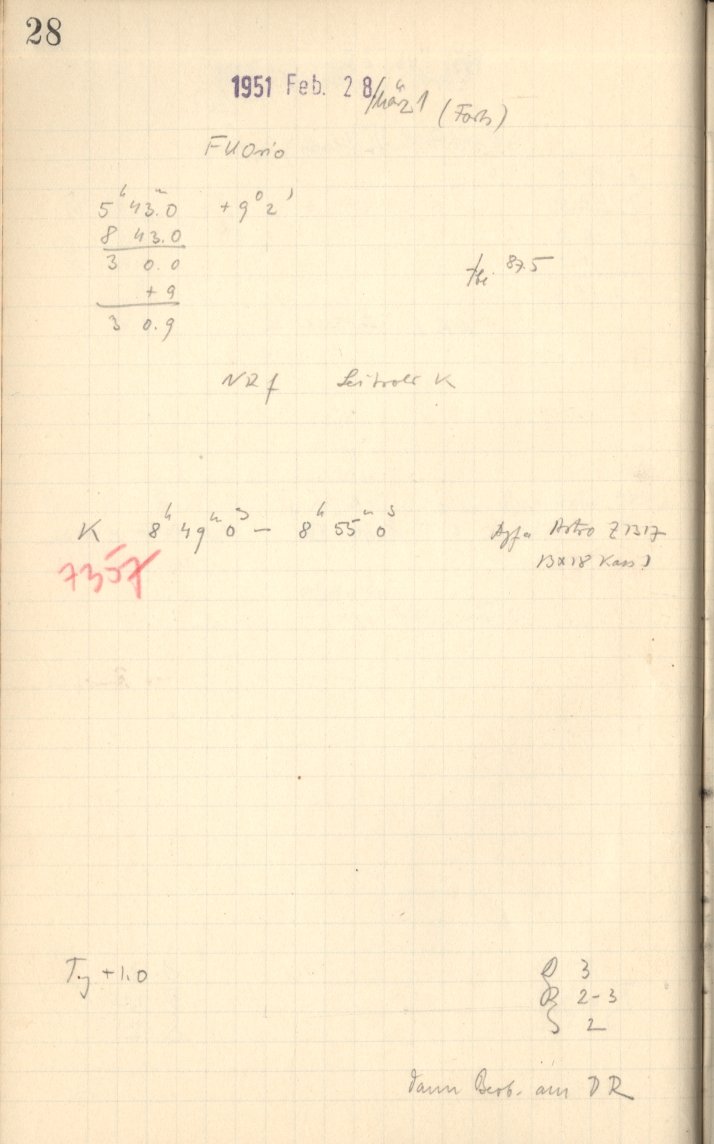 28
1951 Feb. 28/März 1 (Forts)
FU Orio
5ʰ 43ᵐ.0 +9⁰ 2'
8 43.0
3 0.0
+9
3 0.9
fbi 87.5
NR f Leitrohr K
K 8ʰ 49ᵐ 0ˢ – 8ʰ 55ᵐ 0ˢ Agfa Astro Z 1317
13x18 Kass
7357
+1.0
D 3
R 2-3
S 2
dann Beob. am DR